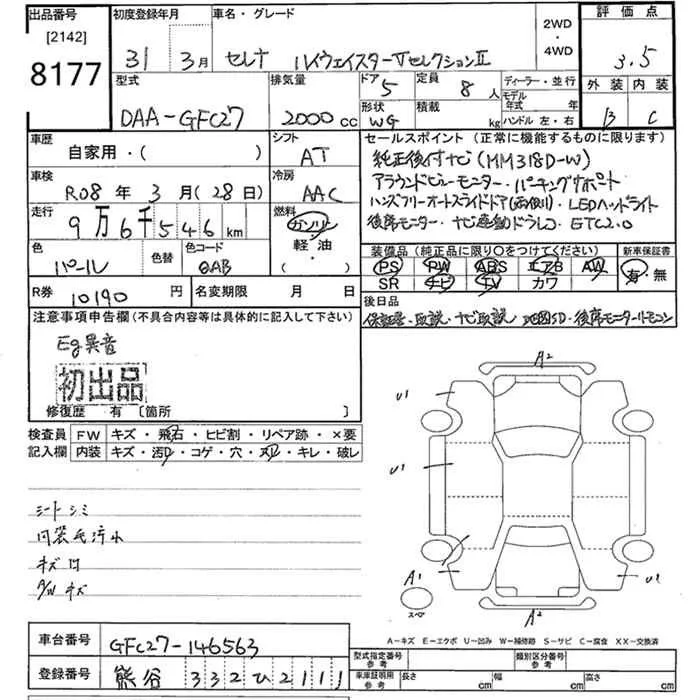 出品番号 [2142] 8177
初度登録年月 31 3月
車名・グレード セレナ ハイウェイスターVセレクションⅡ
2WD・4WD
評価点 3.5
外装 B 内装 C
型式 DAA-GFC27
排気量 2000cc
ドア 5 形状 WG
定員 8人 積載 kg
ディーラー・並行
モデル年式 年式
ハンドル 左・右
車歴 自家用・( )
シフト AT
車検 R08年 3月(28日)
冷房 AAC
走行 9万6千546km
燃料 ガソリン・軽油・( )
色 パール 色替 色コード QAB
R券 10190円 名変期限 月 日
セールスポイント(正常に機能するものに限ります)
純正後付ナビ(MM318D-W)
アラウンドビューモニター・パーキングサポート
ハンズフリーオートスライドドア(両側)・LEDヘッドライト
後席モニター・ナビ連動ドラレコ・ETC2.0
装備品(純正品に限り○をつけてください) 新車保証書
PS PW ABS エアB AW 有・無
SR ナビ TV カワ
後日品
保証書・取説・ナビ取説・地図SD・後席モニターリモコン
注意事項申告欄(不具合内容等は具体的に記入して下さい)
Eg異音
初出品
修復歴 有 〔箇所 〕
検査員 FW キズ・飛石・ヒビ割・リペア跡・×要
記入欄 内装 キズ・汚れ・コゲ・穴・スレ・キレ・破レ
シートシミ
内装毛汚れ
キズ凹
A/Wキズ
A2
U1
U1
A1
U2
A2
スペア
A-キズ E-エクボ U-凹み W-補修跡 S-サビ C-腐食 XX-交換済
車台番号 GFC27-146563
登録番号 熊谷 332ひ2111
型式指定番号 参考 類別区分番号 参考
車庫証明用 参考 長さ cm 幅 cm 高さ cm